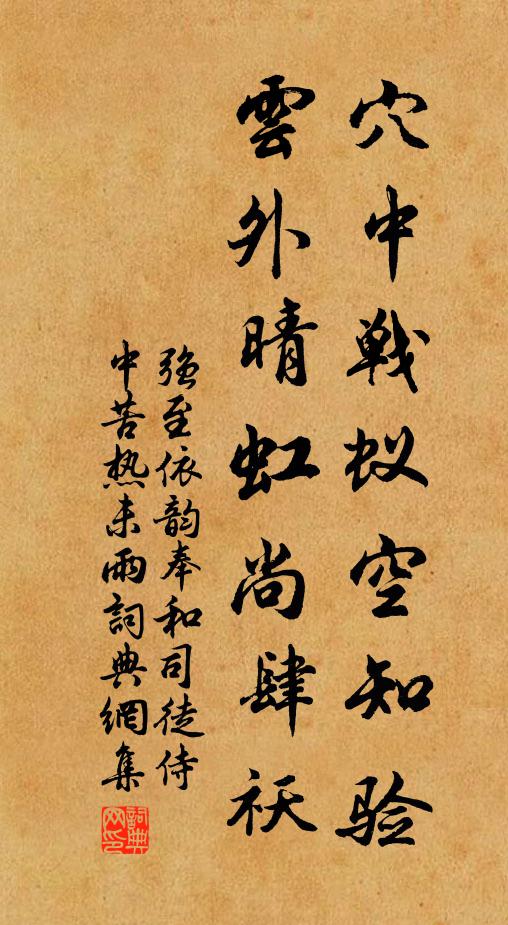 穴中戦蚁空知验
雲外晴虹尚肆祆
强至依韵奉和司徒侍
中苦热未雨詞典網集
詞典
网印